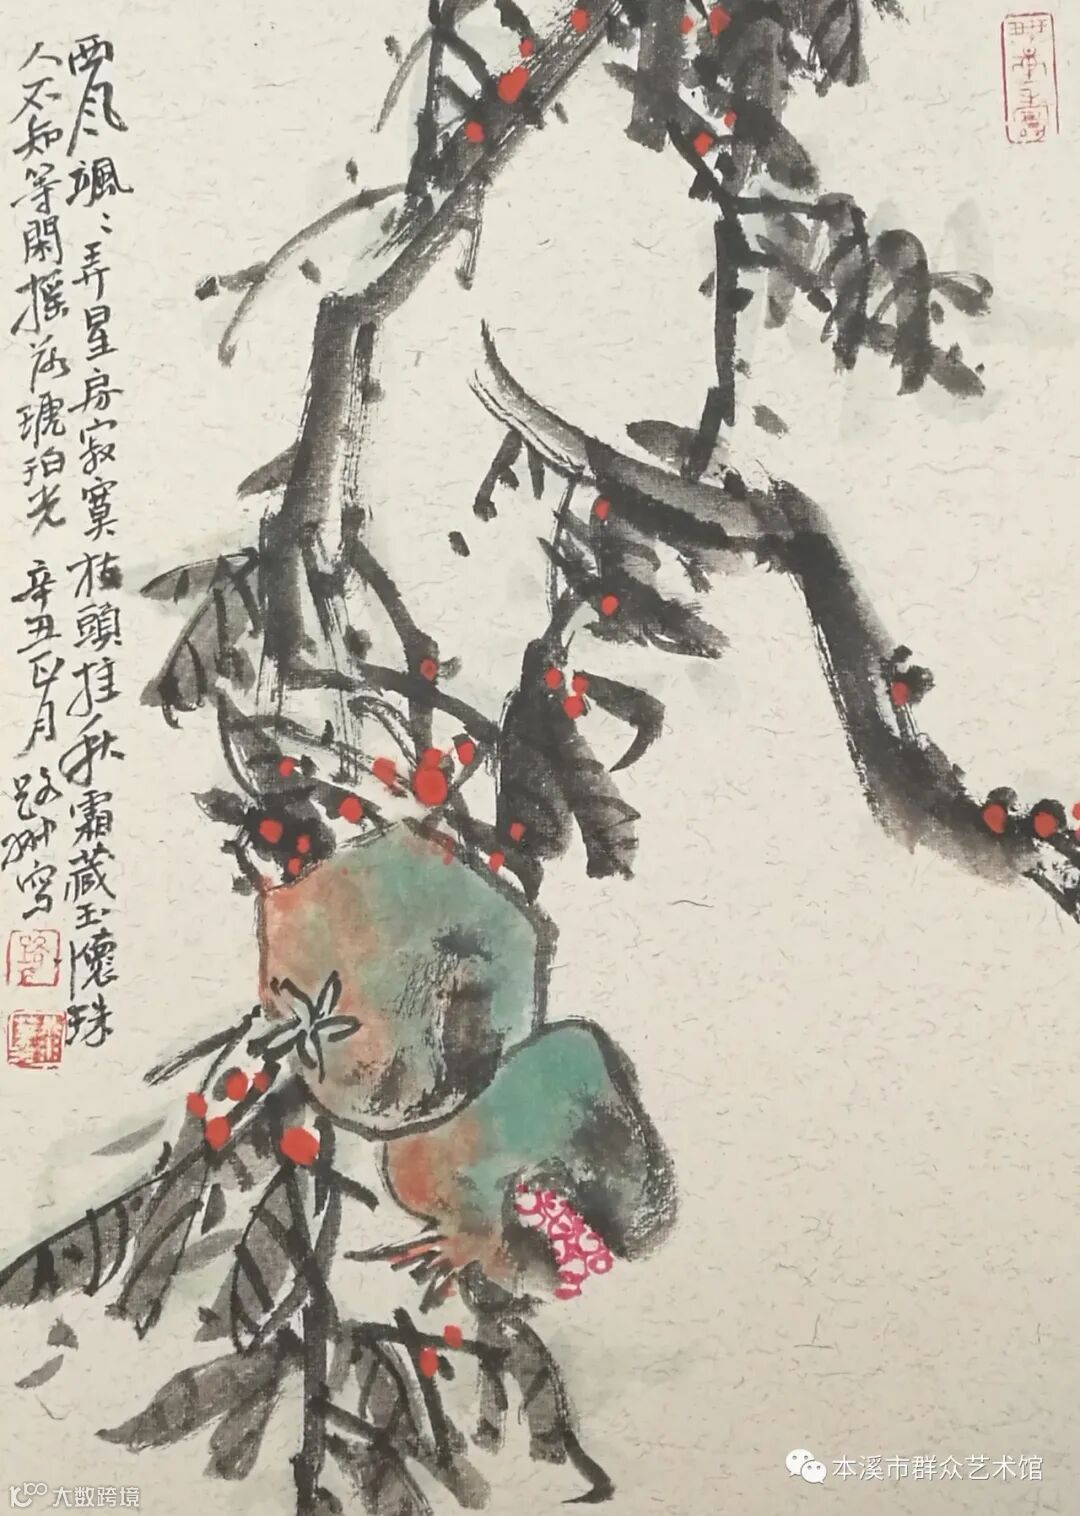 西风飒〻弄星房寂寞枝頭挂秋霜藏玉懷珠
人不知等閑摇落琥珀光 辛丑正月 路
写
本溪市群众艺术馆
大数跨境